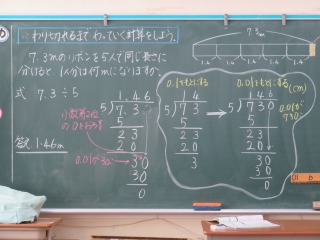 わりきれるまでわっていく計算をしよう。
7.3mのリボンを5人で同じ長さに
分けると1人分は何mになりますか。
式 7.3÷5
答え 1.46m
1.46
5)7.3
5
23
20
30
30
0
0.01が30こ
7.3m
1.4 1.4 1.4 1.4 1.4
0.1をもとにする
1.4
5)7.3
5
23
20
3
0.01をもとにする
(cm)
146
5)730
5
23
20
30
30
0
0.01が
730こ